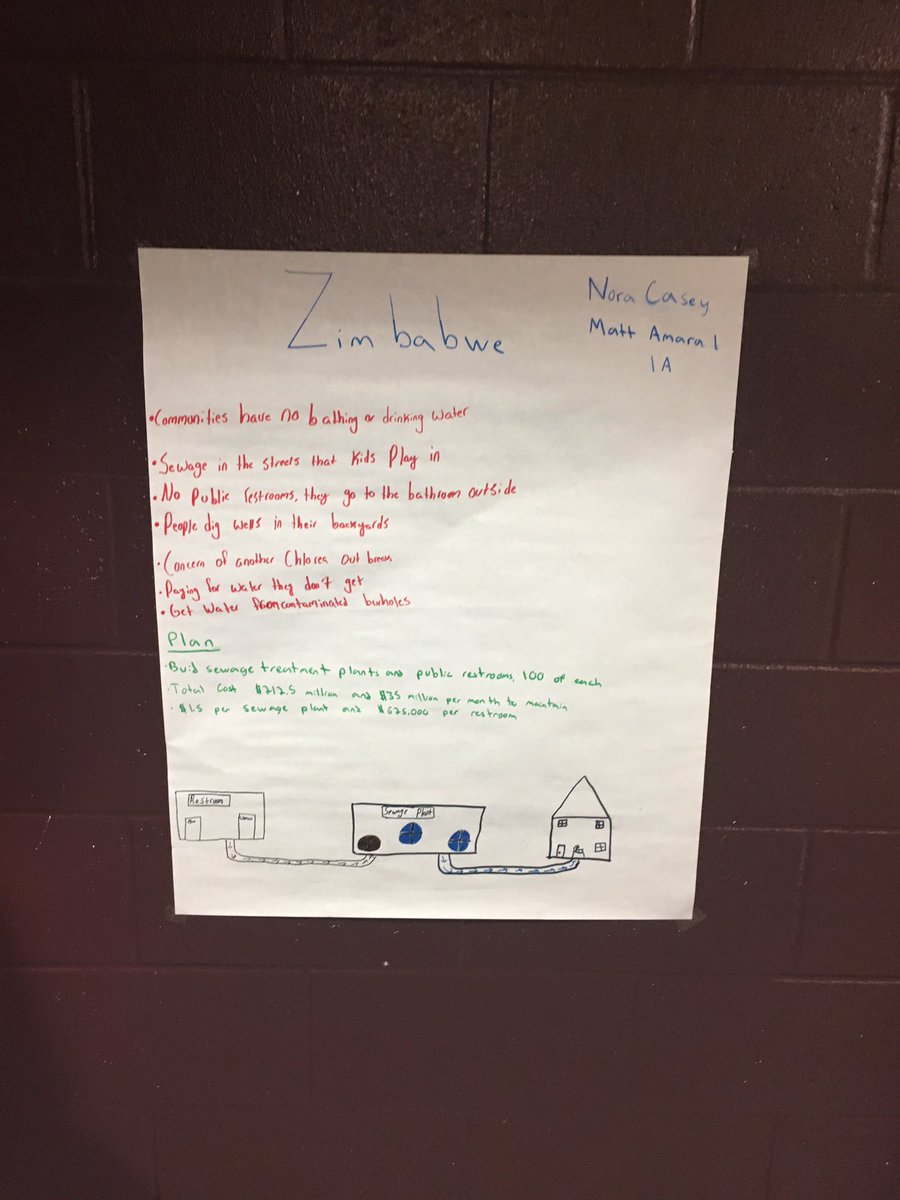 Zimbabwe
Nora Casey
Matt Amaral
1A
•Communities have no bathing or drinking water
•Sewage in the streets that kids Play in
•No Public restrooms, they go to the bathroom outside
•People dig wells in their backyards
•Concern of another Chlorea out break
•Paying for water they don't get
•Get Water from contaminated burholes
Plan
•Buid sewage treatment plants and public restrooms, 100 of each
•Total Cost $212.5 million and $35 million per month to maintain
•$1.5 per sewage plant and $625,000 per restroom
Restroom
Sewage Plant